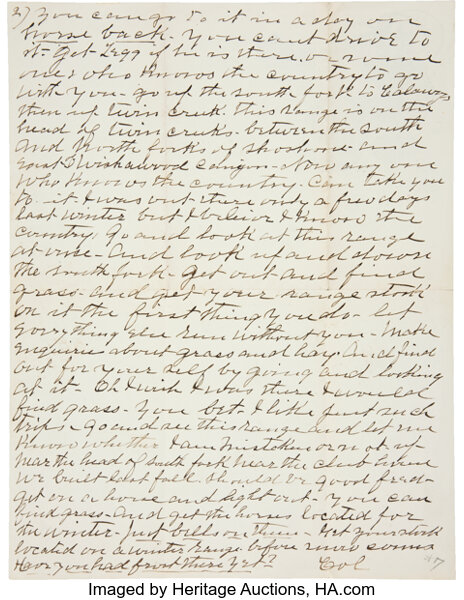 2) You can go to it in a day on
horse back. You can't drive to
it. Get Legg if he is there. or some
one who knows the country to go
with you - go up the south fork to
then up turn creek. this range is on the
head of turn creeks. between the south
and north forks of shoshone and
East of canyon. now any one
who knows the country. Can take you
to it I was out there only a few days
last winter but I believe I know the
country. Go and look at this range
at once. And look up and down
The south fork. Get out and find
grass. and get your range stock
on it the first thing you do. let
everything else run without you. Make
enquiries about grass and hay. And find
out for your self by going and looking
at it. Oh I wish I was there I would
find grass. You bet. I like just such
trips. Go and see this range and let me
know whether I am mistaken or not up
near the head of south fork near the club house
we built last fall should be good feed.
get on a horse and light out. You can
find grass. And get the horses located for
the winter. Just on them. Get your stock
located on a winter range before snow comes
Have you had frost there yet? Col
Imaged by Heritage Auctions, HA.com